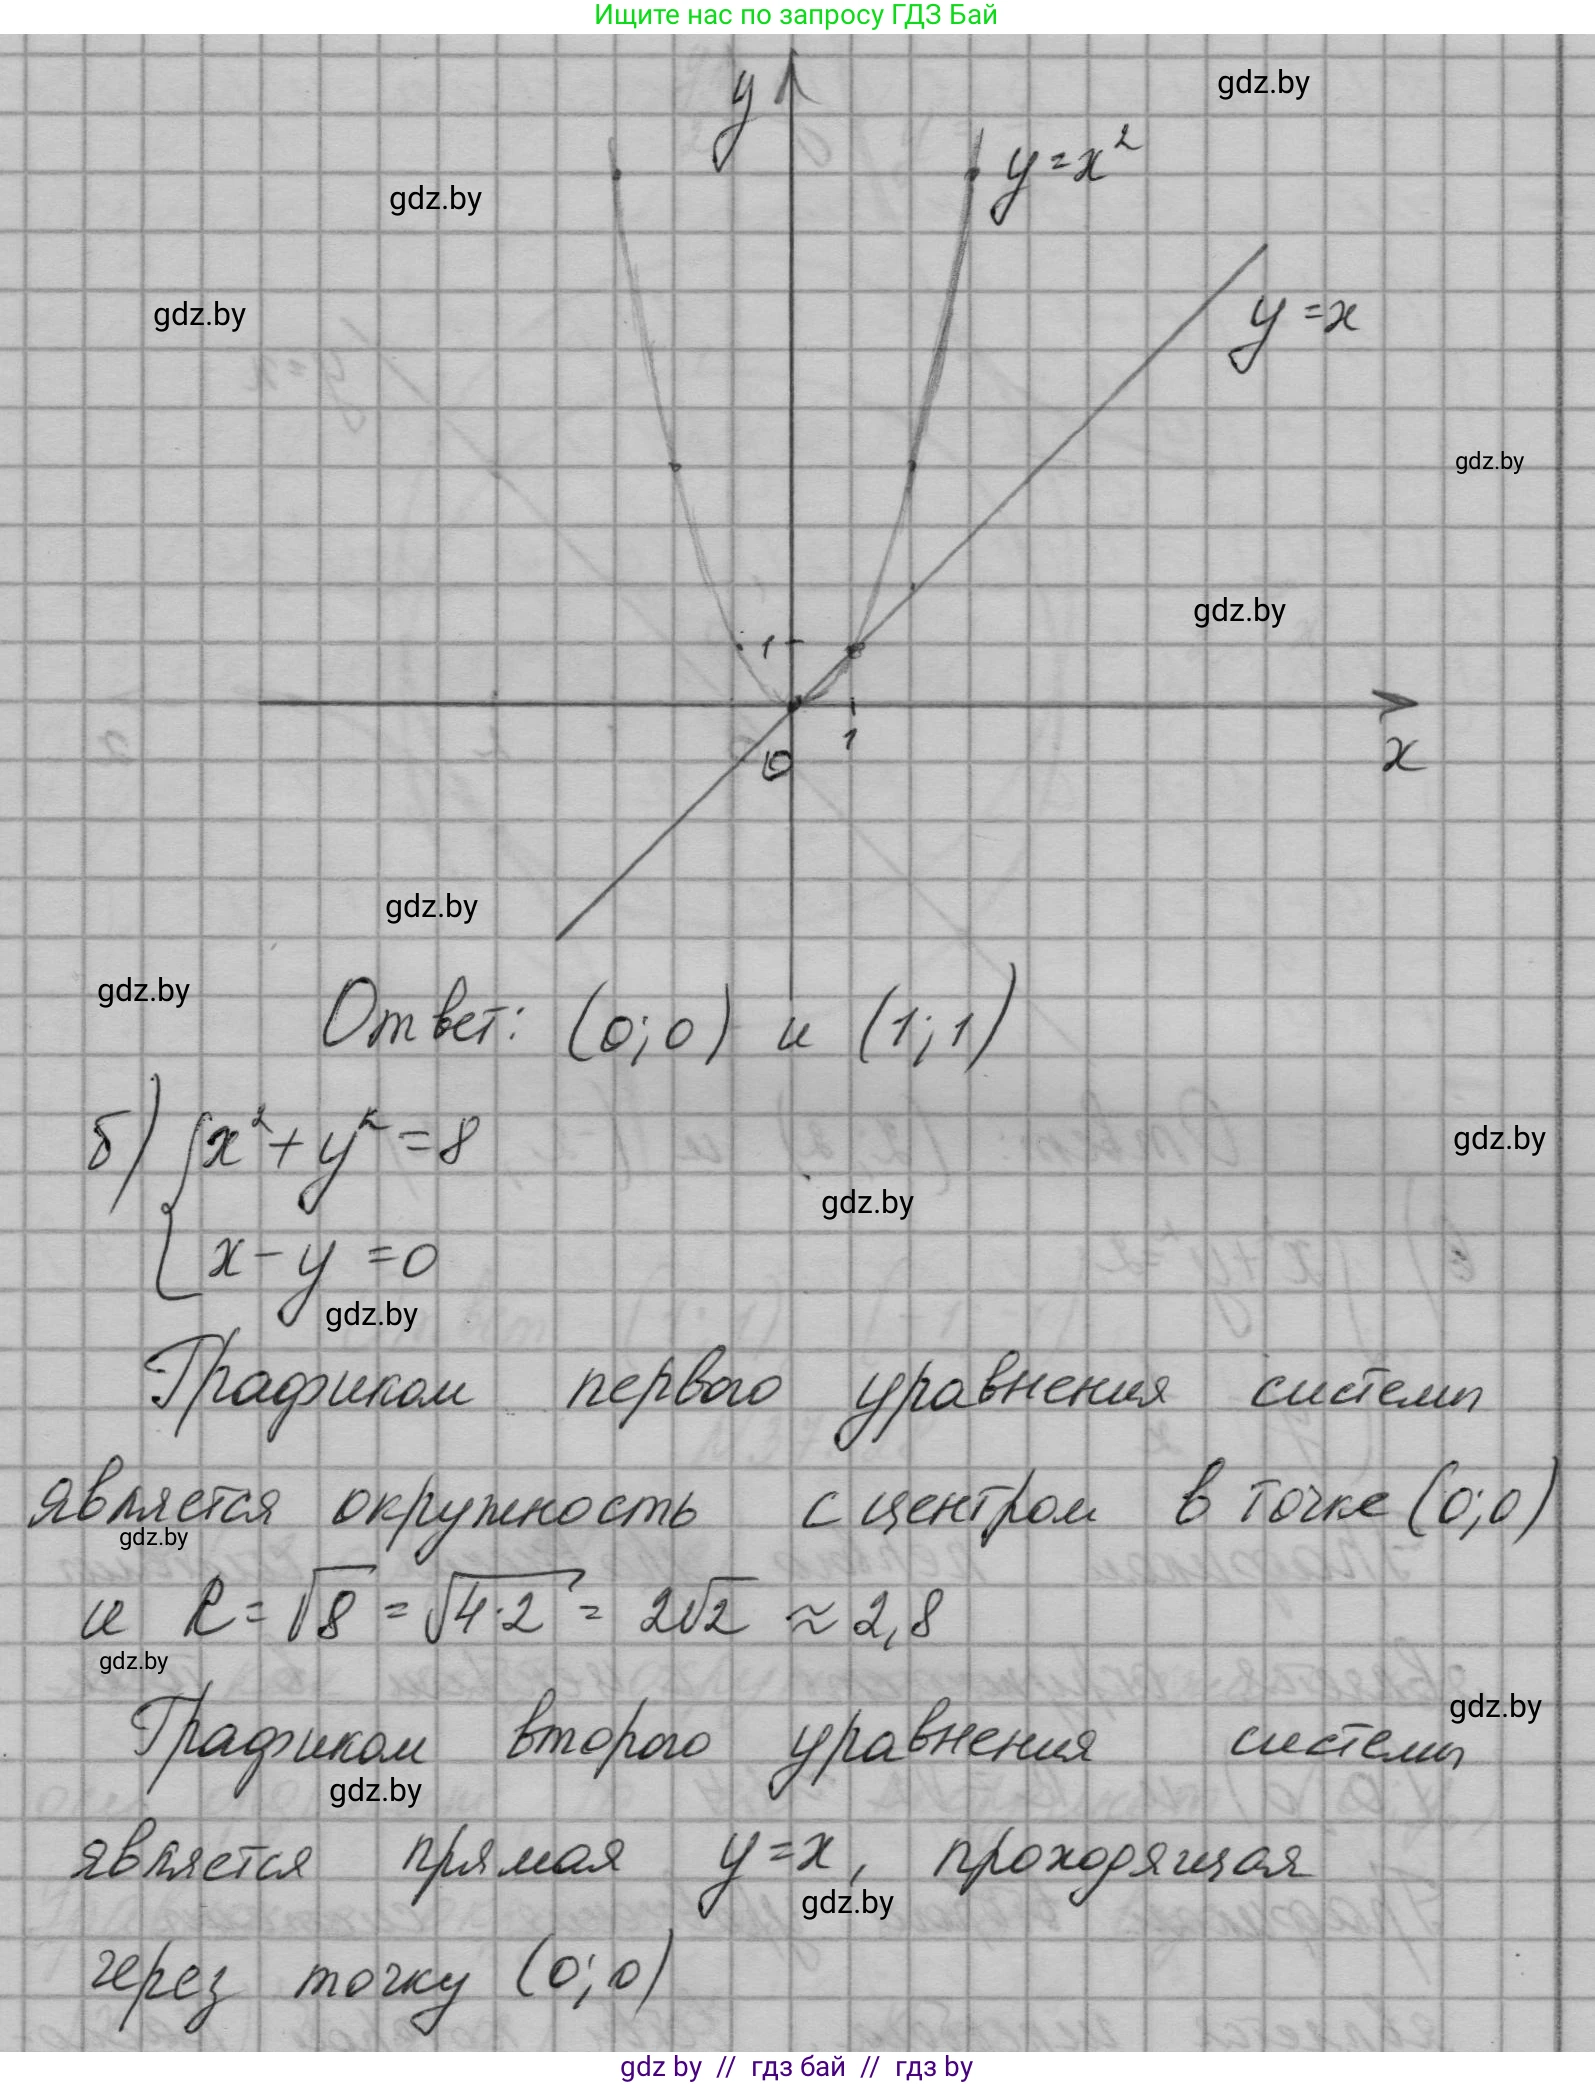 Ищите нас по запросу ГДЗ Бай
gdz.by
y
y=x²
gdz.by
gdz.by
y=x
gdz.by
gdz.by
1
0
1
x
gdz.by
gdz.by
Ответ: (0;0) и (1;1)
б) { x²+y²=8
gdz.by
gdz.by
x-y=0
gdz.by
Графиком первого уравнения системы
является окружность с центром в точке (0;0)
gdz.by
и R=√8=√4·2=2√2≈2,8
gdz.by
Графиком второго уравнения системы
gdz.by
gdz.by
является прямая y=x, проходящая
gdz.by
через точку (0;0)
gdz by // гдз бай // гдз by